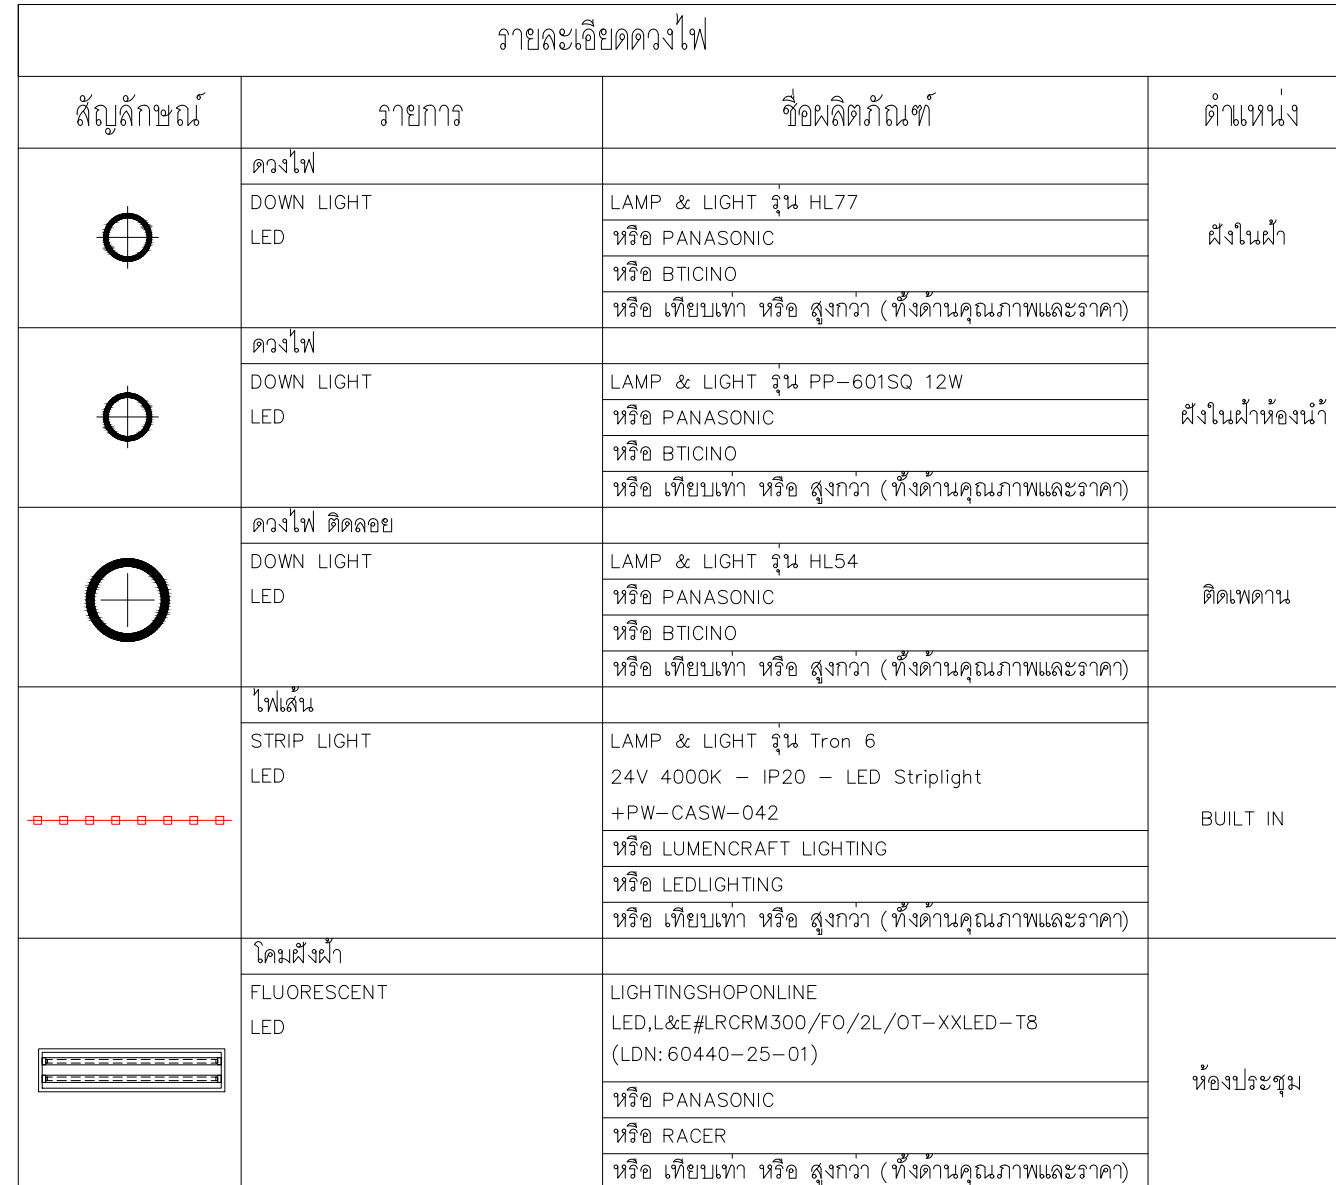 รายละเอียดดวงไฟ
สัญลักษณ์ รายการ ชื่อผลิตภัณฑ์ ตำแหน่ง
ดวงไฟ
DOWN LIGHT LAMP & LIGHT รุ่น HL77
LED หรือ PANASONIC ฝังในฝ้า
หรือ BTICINO
หรือ เทียบเท่า หรือ สูงกว่า (ทั้งด้านคุณภาพและราคา)
ดวงไฟ
DOWN LIGHT LAMP & LIGHT รุ่น PP-601SQ 12W
LED หรือ PANASONIC ฝังในฝ้าห้องน้ำ
หรือ BTICINO
หรือ เทียบเท่า หรือ สูงกว่า (ทั้งด้านคุณภาพและราคา)
ดวงไฟ ติดลอย
DOWN LIGHT LAMP & LIGHT รุ่น HL54
LED หรือ PANASONIC ติดเพดาน
หรือ BTICINO
หรือ เทียบเท่า หรือ สูงกว่า (ทั้งด้านคุณภาพและราคา)
ไฟเส้น
STRIP LIGHT LAMP & LIGHT รุ่น Tron 6
LED 24V 4000K - IP20 - LED Striplight
+PW-CASW-042 BUILT IN
หรือ LUMENCRAFT LIGHTING
หรือ LEDLIGHTING
หรือ เทียบเท่า หรือ สูงกว่า (ทั้งด้านคุณภาพและราคา)
โคมฝังฝ้า
FLUORESCENT LIGHTINGSHOPONLINE
LED LED,L&E#LRCRM300/FO/2L/OT-XXLED-T8
(LDN:60440-25-01)
หรือ PANASONIC ห้องประชุม
หรือ RACER
หรือ เทียบเท่า หรือ สูงกว่า (ทั้งด้านคุณภาพและราคา)